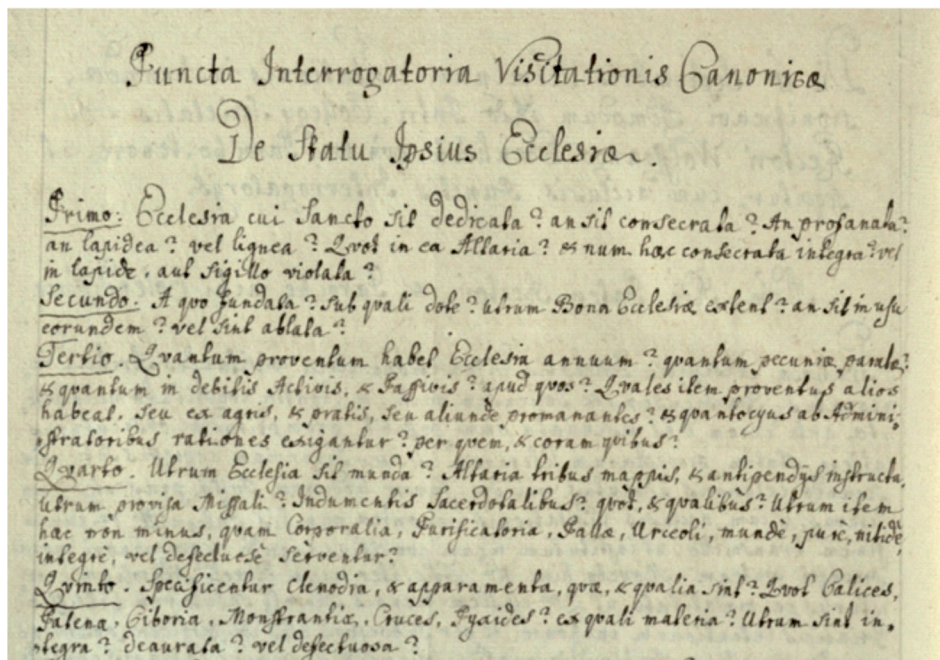 Puncta Interrogatoria Visitationis Canonicæ
De Statu Ipsius Ecclesiæ.
Primo: Ecclesia cui Sancto sit dedicata? an sit consecrata? An profanata?
an lapidea? vel lignea? Qvot in ea Altaria? & num hæc consecrata integra? vel
in lapide, aut sigillo violata?
Secundo. A quo fundata? sub quali dote? utrum Bona Ecclesiæ extent? an sit in usu
eorundem? vel sint ablata?
Tertio. Qvantum proventum habet Ecclesia annuum? qvantum pecuniæ paratæ?
& quantum in debitis Activis, & Passivis? apud quos? Qvales item proventus alios
habeat, seu ex agris, & pratis, seu aliunde promanantes? & quantocyus ab Admini,
stratoribus rationes exigantur? per quem, & coram qvibus?
Qvarto. Utrum Ecclesia sit munda? Altaria tribus mappis, & antipendijs instructa,
utrum provisa Missali? Indumentis Sacerdotalibus? quot, & qvalibus? Utrum item
hæc non minus, quam Corporalia, Purificatoria, Pallæ, Urceoli, mundè, purè, nitidè,
integrè, vel defectuosè serventur?
Qvinto. Specificentur Clenodia, & apparamenta, quæ, & qvalia sint? Qvot Calices,
Patena, Ciboria, Monstrantiæ, Cruces, Pyxides? ex quali materia? Utrum sint in,
tegra? deaurata? vel defectuosa?